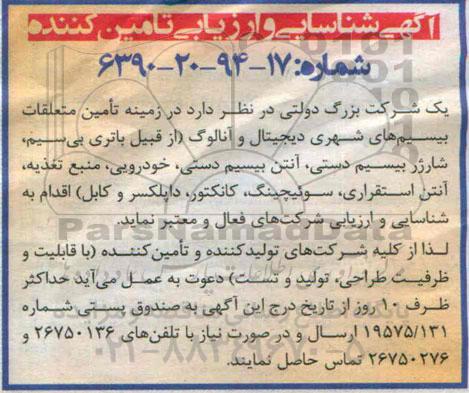 آگهی شناسایی و ارزیابی تامین کننده
شماره: ۱۷-۹۴-۲۰-۶۳۹۰
یک شرکت بزرگ دولتی در نظر دارد در زمینه تأمین متعلقات
بیسیم‌های شهری دیجیتال و آنالوگ (از قبیل باتری بی‌سیم،
شارژر بیسیم دستی، آنتن بیسیم دستی، خودرویی، منبع تغذیه،
آنتن استقراری، سوئیچینگ، کانکتور، داپلکسر و کابل) اقدام به
شناسایی و ارزیابی شرکت‌های فعال و معتبر نماید.
ParsNamadData
لذا از کلیه شرکت‌های تولیدکننده و تأمین‌کننده (با قابلیت و
ظرفیت طراحی، تولید و تست) دعوت به عمل می‌آید حداکثر
ظرف ۱۰ روز از تاریخ درج این آگهی به صندوق پستی شماره
۱۹۵۷۵/۱۳۱ ارسال و در صورت نیاز با تلفن‌های ۲۶۷۵۰۱۳۶ و
۲۶۷۵۰۲۷۶ تماس حاصل نمایند.